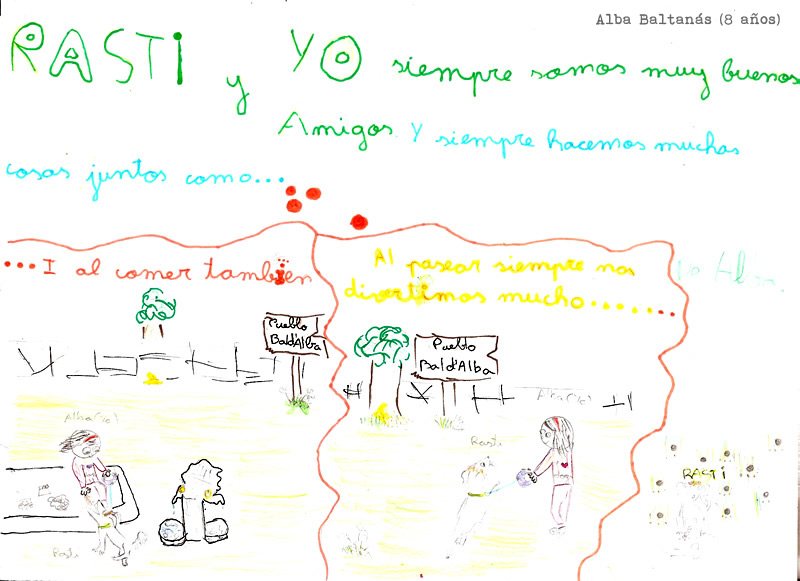 Alba Baltanás (8 años)
RASTI y YO siempre somos muy buenos
Amigos. Y siempre hacemos muchas
cosas juntos como...
...I al comer tambien
Al pasear siempre nos
divertimos mucho........
Pueblo
Bald'Alba
Pueblo
Bald'Alba
Alba (Yo)
Rasti
Alba (Yo)
Rasti
RASTI